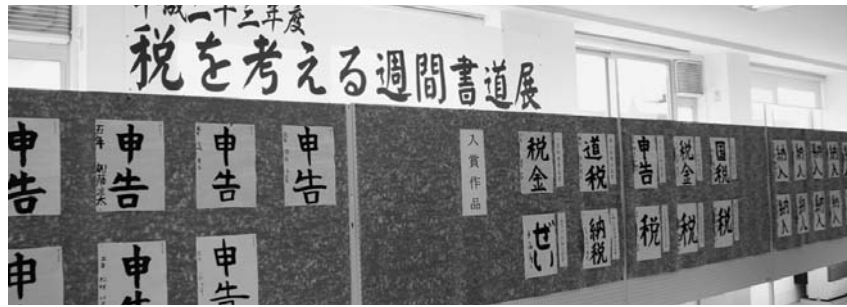 平成二十三年度
税を考える週間書道展
申告
申告
申告
申告
申
申告
申告
入賞作品
税金
道税
申告
税金
国税
ぜい
納税
税
税
税
納入
納入
納入
納入
納入
納入
納入
納入